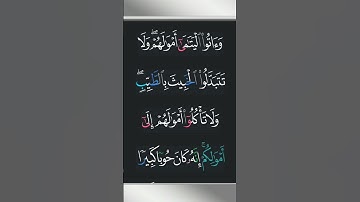 وَءَاتُوا۟ ٱلْيَتَـٰمَىٰٓ أَمْوَٰلَهُمْ ۖ وَلَا
تَتَبَدَّلُوا۟ ٱلْخَبِيثَ بِٱلطَّيِّبِ ۖ
وَلَا تَأْكُلُوٓا۟ أَمْوَٰلَهُمْ إِلَىٰٓ
أَمْوَٰلِكُمْ ۚ إِنَّهُۥ كَانَ حُوبًا كَبِيرًا